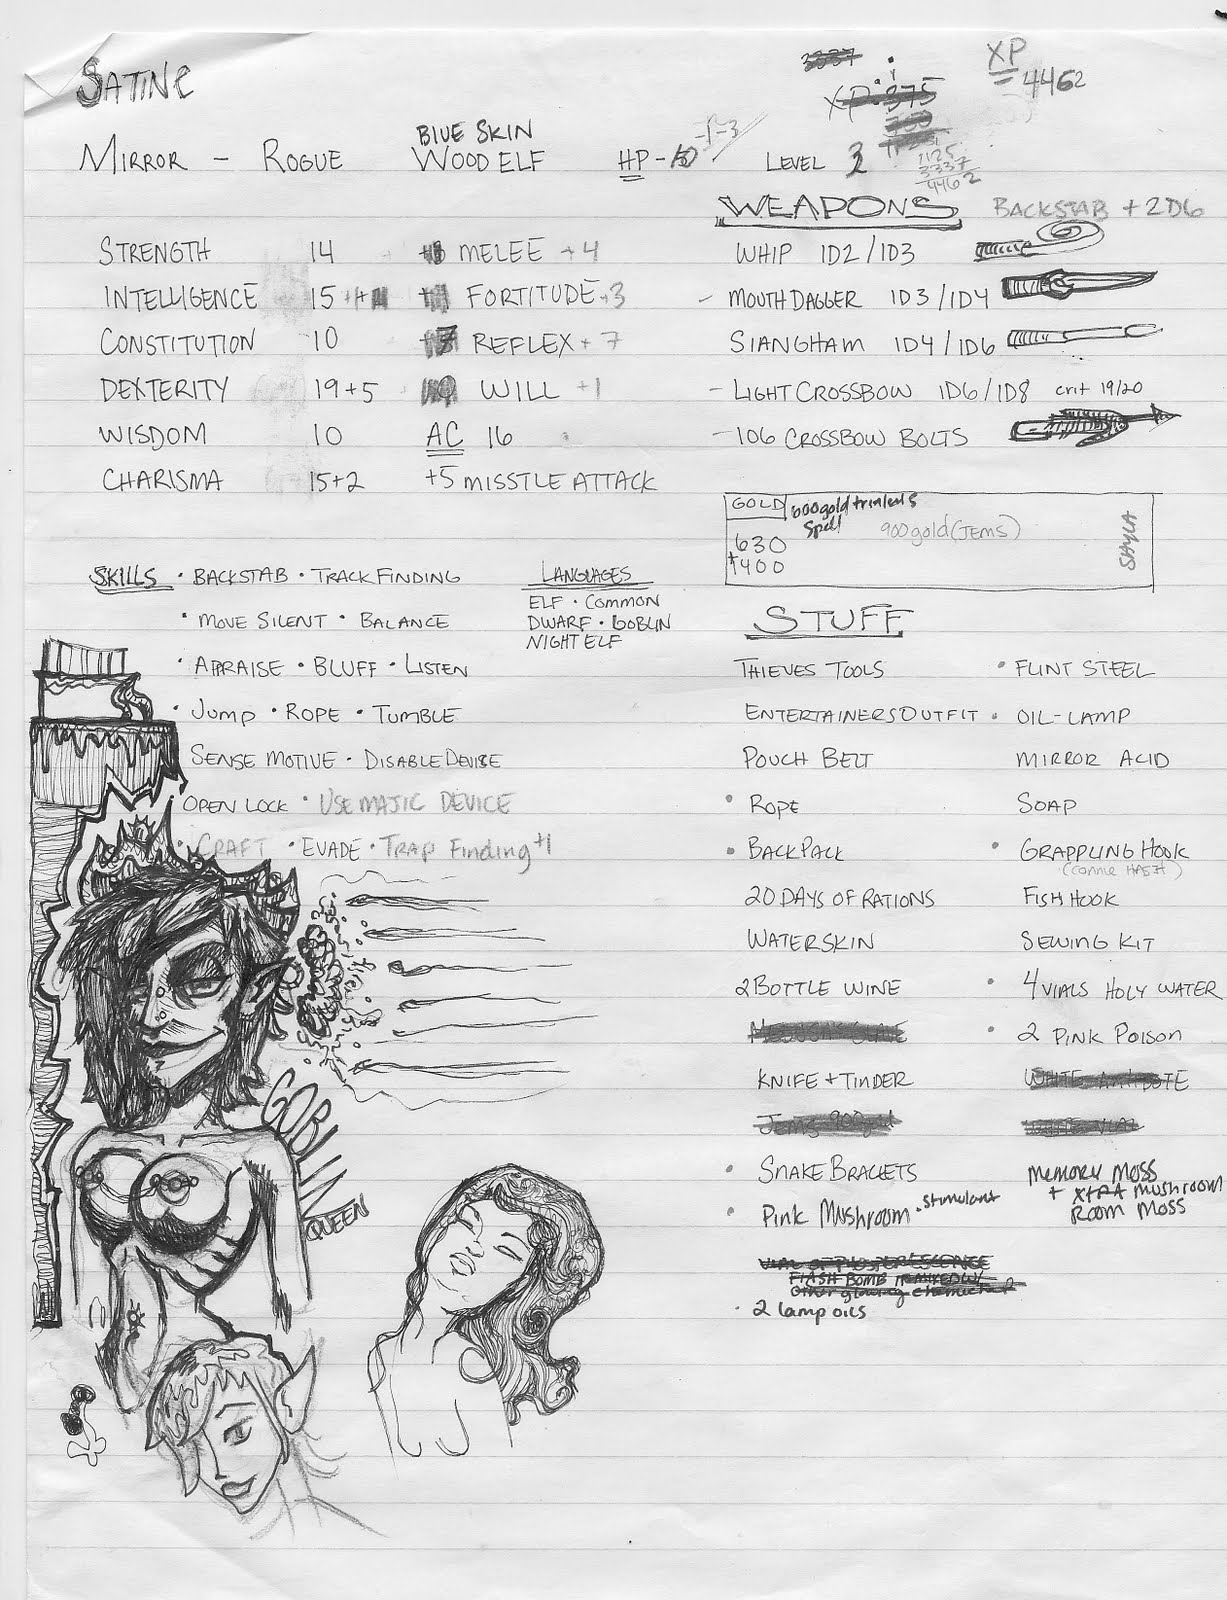 SATINE
XP
4462
XP: 375
1125
3337
4462
BLUE SKIN
MIRROR - ROGUE WOOD ELF HP - 10 LEVEL 3
WEAPONS BACKSTAB + 2D6
STRENGTH 14 MELEE +4
INTELLIGENCE 15 FORTITUDE +3
CONSTITUTION 10 REFLEX + 7
DEXTERITY 19+5 WILL +1
WISDOM 10 AC 16
CHARISMA 15+2 +5 MISSTLE ATTACK
WHIP 1D2/1D3
- MOUTH DAGGER 1D3/1D4
SIANGHAM 1D4/1D6
- LIGHT CROSSBOW 1D6/1D8 crit 19/20
- 106 CROSSBOW BOLTS
GOLD 600gold trinkets
Spell 900gold (JEMS)
630
+400
SHYLA
SKILLS • BACKSTAB • TRACK FINDING
• MOVE SILENT • BALANCE
• APPRAISE • BLUFF • LISTEN
• JUMP • ROPE • TUMBLE
SENSE MOTIVE • DISABLE DEVISE
OPEN LOCK • USE MAJIC DEVICE
• CRAFT • EVADE • TRAP Finding +1
LANGUAGES
ELF • COMMON
DWARF • GOBLIN
NIGHT ELF
STUFF
THIEVES TOOLS • FLINT STEEL
ENTERTAINERS OUTFIT • OIL-LAMP
POUCH BELT MIRROR ACID
• ROPE SOAP
• BACKPACK • GRAPPLING HOOK
20 DAYS OF RATIONS FISH HOOK
WATERSKIN SEWING KIT
2 BOTTLE WINE • 4 VIALS HOLY WATER
• 2 PINK POISON
KNIFE + TINDER WHITE ANTIDOTE
Jems 900gold WHITE VIAL
• SNAKE BRACLETS MEMORY MOSS
+ XTRA MUSHROOM
• Pink Mushroom • stimulant ROOM MOSS
VIAL OF PHOSPERESCENCE
FLASH BOMB IF MIXED W/
other glowing chemical
• 2 lamp oils
GOBLIN
QUEEN